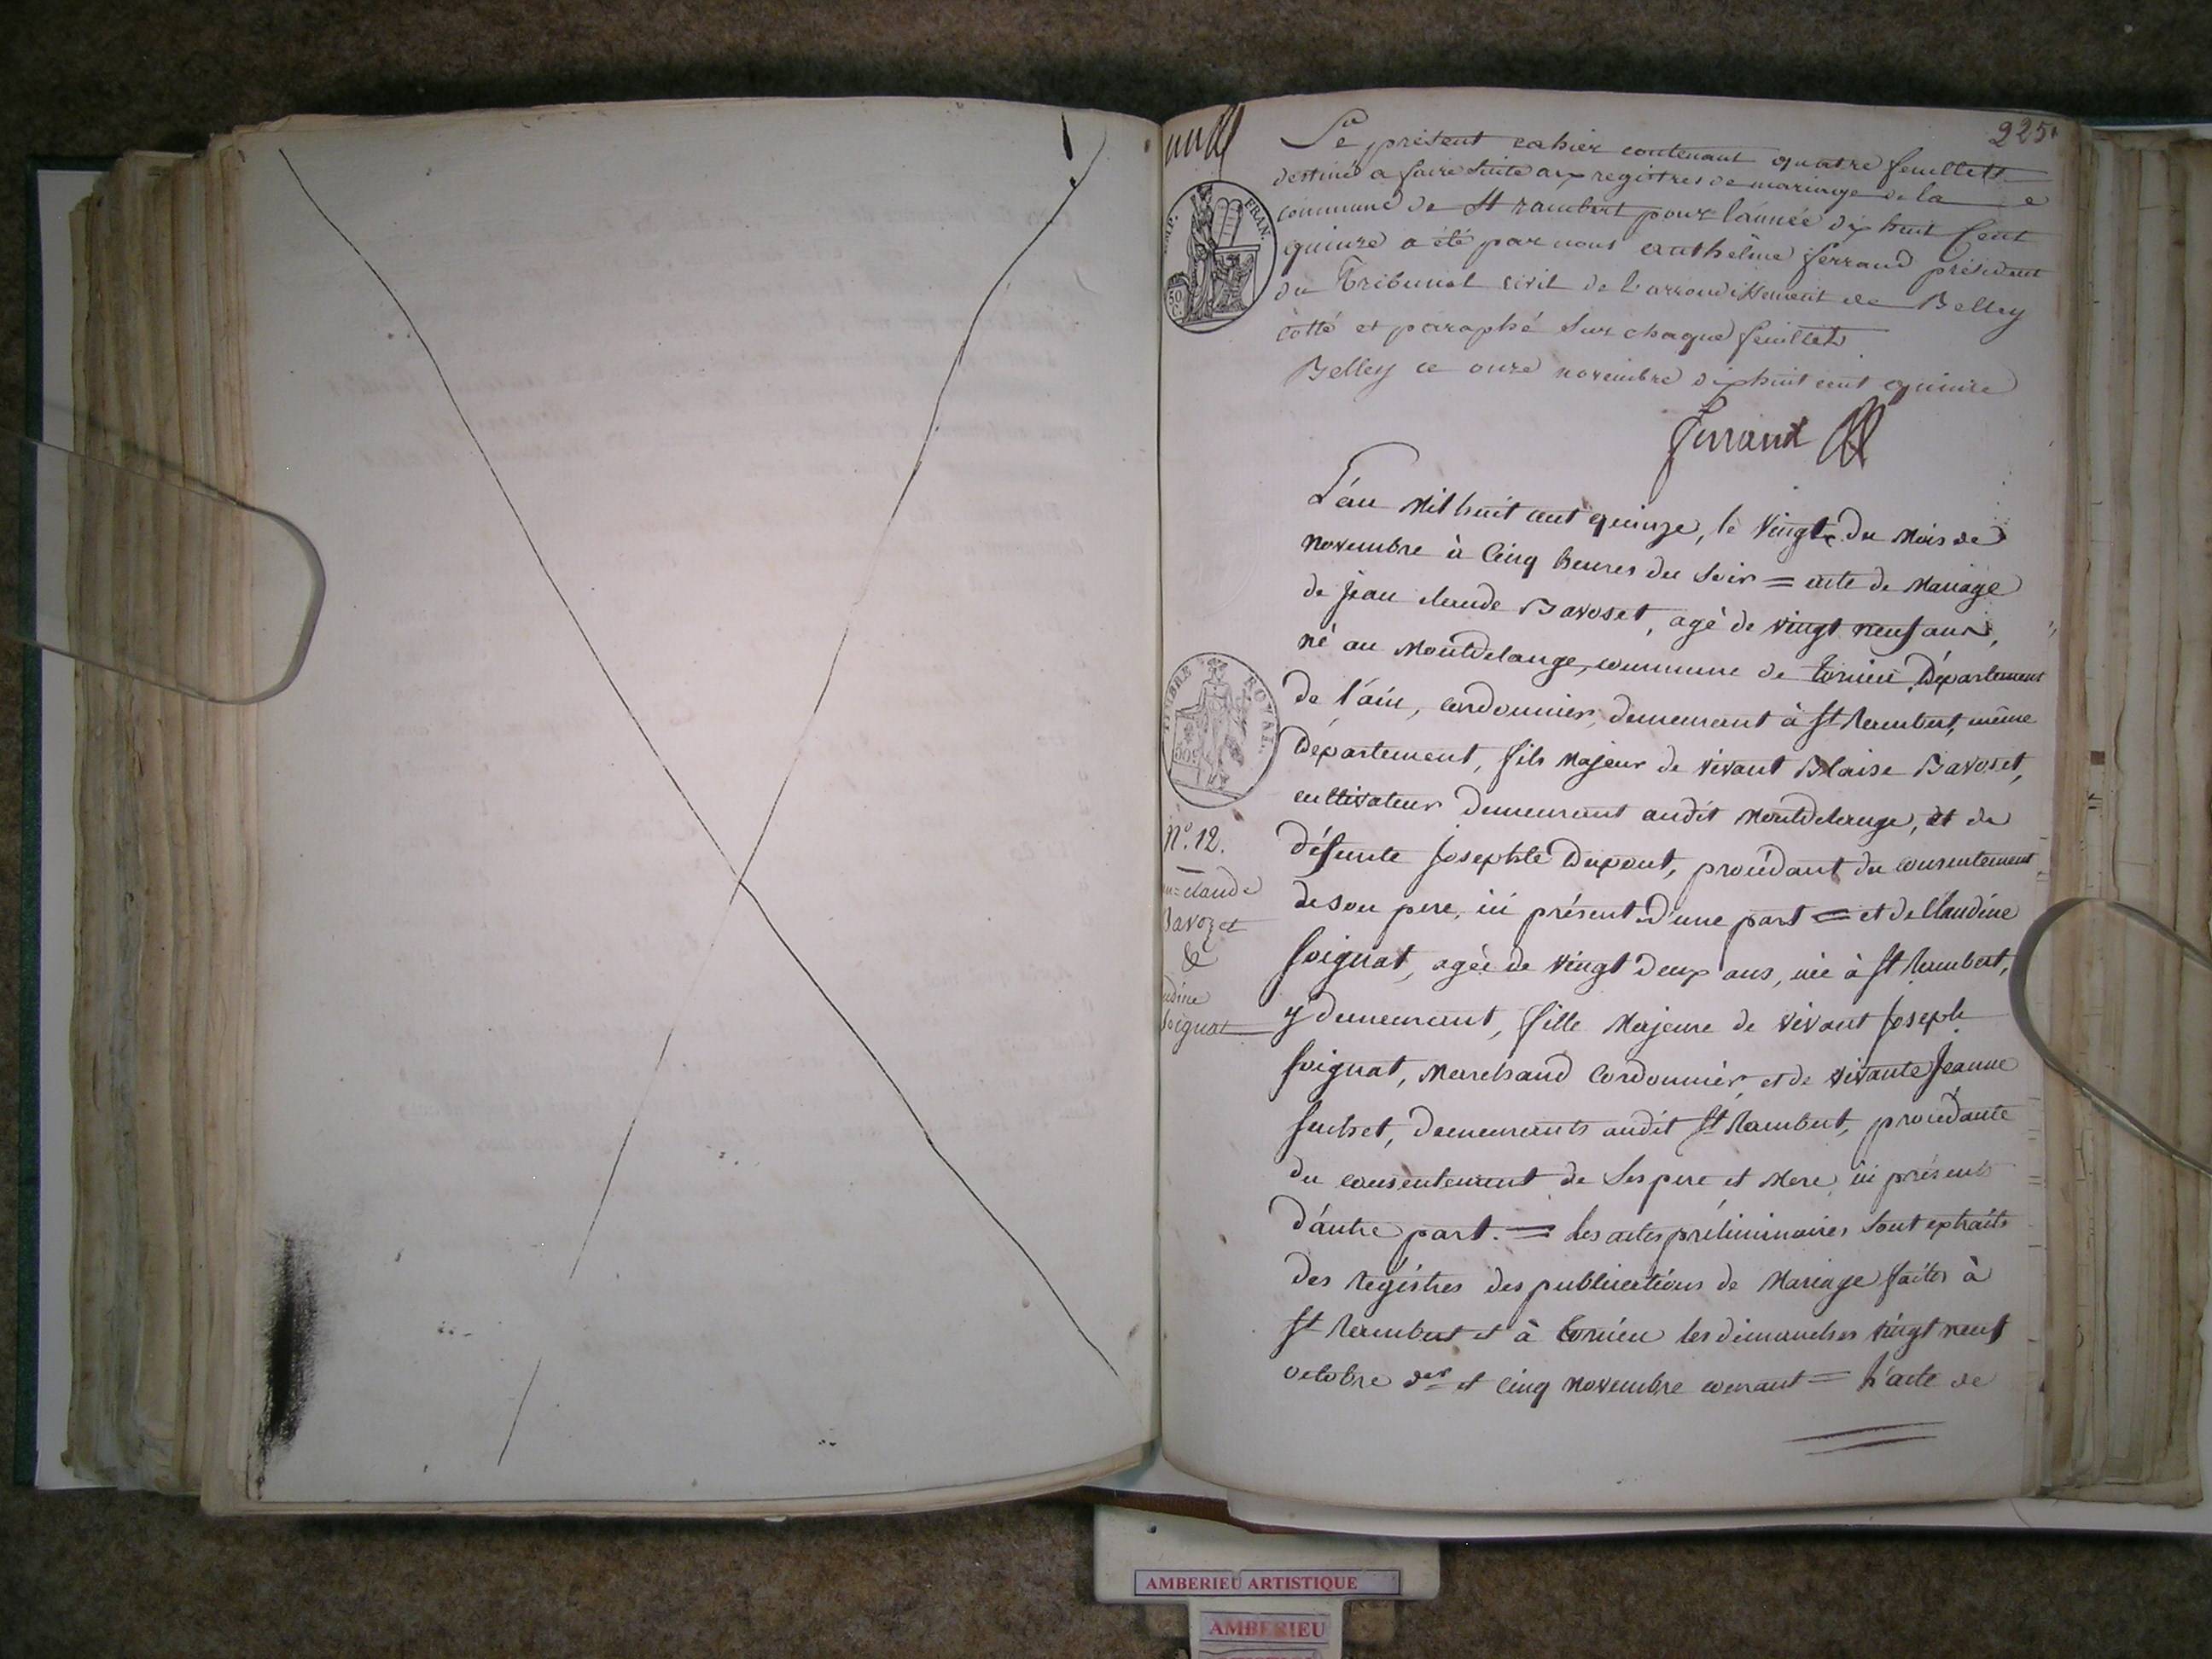 225.
Le présent cahier contenant quatre feuillets
destiné a faire suite aux registres de mariage de la
commune de St rambert pour l'année dix huit Cent
quinze a été par nous anthelme ferrand président
du Tribunal civil de l'arrondissement de Belley
côtté et paraphé sur chaque feuillets
Belley ce onze novembre dix huit cent quinze
ferrand
L'an Mil huit cent quinze, le Vingt du Mois de
Novembre à Cinq heures du soir = acte de Mariage
de Jean claude Bavoset, agé de vingt neuf ans,
né au Montdelange, commune de torcieu Département
de l'ain, cordonnier, demeurant à St Rambert, même
Département, fils Majeur de vivant Blaise Bavoset,
cultivateur demeurant audit Montdelange, et de
défunte Josephte Dupont, procédant du consentement
de son pere, ici présent d'une part = et de Claudine
Soignat, agée de vingt deux ans, née à St Rambert,
y demeurant, fille Majeure de vivant Joseph
Soignat, Marchand Cordonnier, et de vivante Jeanne
Suchet, demeurants audit St Rambert, procédante
du consentement de Ses pere et Mere, ici présents
d'autre part. = Les actes préliminaires sont extraits
des Régistres des publications de Mariage faites à
St Rambert et à torcieu les dimanches vingt neuf
octobre der et cinq Novembre courant = L'acte de
IMP. FRAN.
50 C.
TIMBRE ROYAL.
50
No. 12.
n=claude
Bavozet
&
udine
Soignat
AMBERIEU ARTISTIQUE
AMBERIEU